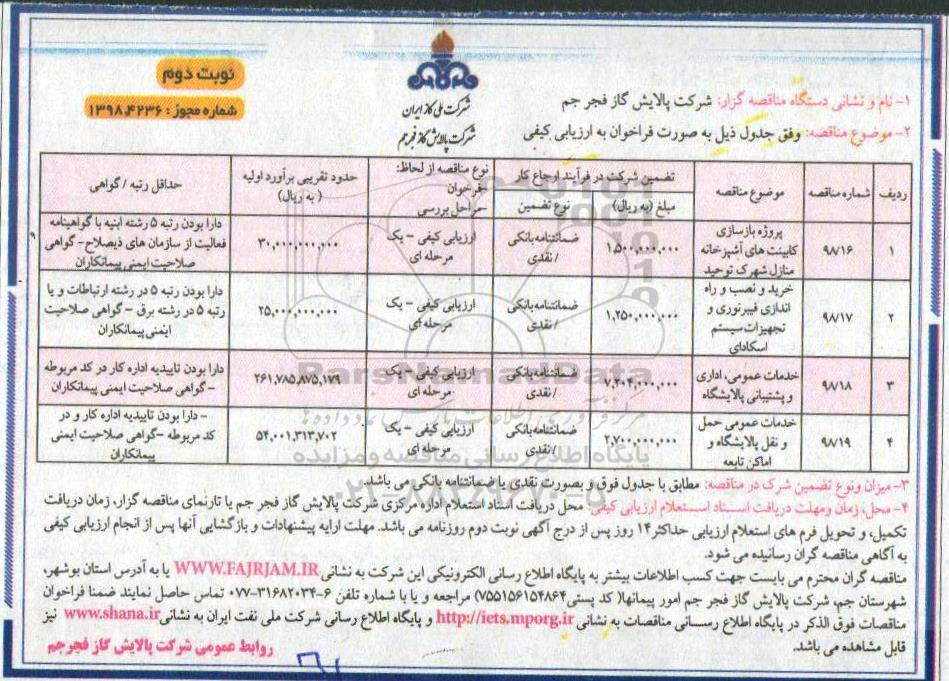 نوبت دوم
شماره مجوز : ۱۳۹۸،۴۲۳۶
شرکت ملی گاز ایران
شرکت پالایش گاز فجر جم
۱- نام و نشانی دستگاه مناقصه گزار: شرکت پالایش گاز فجر جم
۲- موضوع مناقصه: وفق جدول ذیل به صورت فراخوان به ارزیابی کیفی
ردیف | شماره مناقصه | موضوع مناقصه | تضمین شرکت در فرآیند ارجاع کار | نوع مناقصه از لحاظ: -فرخوان -مراحل بررسی | حدود تقریبی برآورد اولیه ( به ریال) | حداقل رتبه / گواهی
مبلغ (به ریال) | نوع تضمین
۱ | ۹۸/۱۶ | پروژه بازسازی کابینت های آشپزخانه منازل شهرک توحید | ۱,۵۰۰,۰۰۰,۰۰۰ | ضمانتنامه بانکی / نقدی | ارزیابی کیفی – یک مرحله ای | ۳۰,۰۰۰,۰۰۰,۰۰۰ | دارا بودن رتبه ۵ رشته ابنیه با گواهینامه فعالیت از سازمان های ذیصلاح- گواهی صلاحیت ایمنی پیمانکاران
۲ | ۹۸/۱۷ | خرید و نصب و راه اندازی فیبرنوری و تجهیزات سیستم اسکادای | ۱,۲۵۰,۰۰۰,۰۰۰ | ضمانتنامه بانکی / نقدی | ارزیابی کیفی – یک مرحله ای | ۲۵,۰۰۰,۰۰۰,۰۰۰ | دارا بودن رتبه ۵ در رشته ارتباطات و یا رتبه ۵ در رشته برق – گواهی صلاحیت ایمنی پیمانکاران
۳ | ۹۸/۱۸ | خدمات عمومی، اداری و پشتیبانی پالایشگاه | ۷,۲۰۴,۰۰۰,۰۰۰ | ضمانتنامه بانکی / نقدی | ارزیابی کیفی – یک مرحله ای | ۲۶۱,۷۸۵,۸۷۵,۱۷۹ | دارا بودن تاییدیه اداره کار در کد مربوطه – گواهی صلاحیت ایمنی پیمانکاران
۴ | ۹۸/۱۹ | خدمات عمومی حمل و نقل پالایشگاه و اماکن تابعه | ۲,۷۰۰,۰۰۰,۰۰۰ | ضمانتنامه بانکی / نقدی | ارزیابی کیفی – یک مرحله ای | ۵۴,۰۰۱,۳۱۳,۷۰۲ | - دارا بودن تاییدیه اداره کار و در کد مربوطه –گواهی صلاحیت ایمنی پیمانکاران
ParsNamadData
پایگاه اطلاع رسانی مناقصه و مزایده
۳- میزان ونوع تضمین شرک در مناقصه: مطابق با جدول فوق و بصورت نقدی یا ضمانتنامه بانکی می باشد.
۴- محل، زمان ومهلت دریافت اسناد استعلام ارزیابی کیفی: محل دریافت اسناد استعلام اداره مرکزی شرکت پالایش گاز فجر جم یا تارنمای مناقصه گزار، زمان دریافت
تکمیل، و تحویل فرم های استعلام ارزیابی حداکثر۱۴ روز پس از درج آگهی نوبت دوم روزنامه می باشد. مهلت ارایه پیشنهادات و بازگشایی آنها پس از انجام ارزیابی کیفی
به آگاهی مناقصه گران رسانیده می شود.
مناقصه گران محترم می بایست جهت کسب اطلاعات بیشتر به پایگاه اطلاع رسانی الکترونیکی این شرکت به نشانی WWW.FAJRJAM.IR یا به آدرس استان بوشهر،
شهرستان جم، شرکت پالایش گاز فجر جم امور پیمانها( کد پستی۷۵۵۱۵۶۱۵۴۸۶۴) مراجعه و یا با شماره تلفن ۶-۰۷۷-۳۱۶۸۲۰۳۴ تماس حاصل نمایند ضمنا فراخوان
مناقصات فوق الذکر در پایگاه اطلاع رسانی مناقصات به نشانی http://iets.mporg.ir و پایگاه اطلاع رسانی شرکت ملی نفت ایران به نشانی www.shana.ir نیز
قابل مشاهده می باشد.
روابط عمومی شرکت پالایش گاز فجرجم